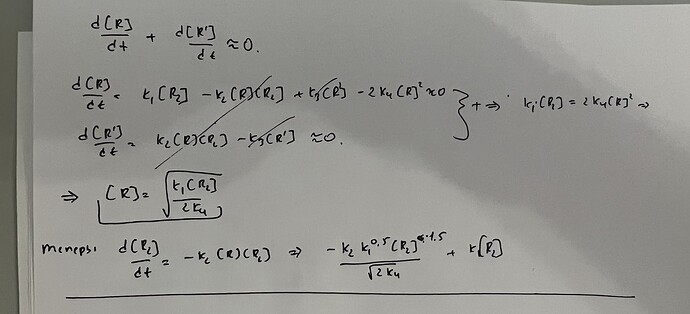 d[R]/dt + d[R']/dt ≈ 0.
d[R]/dt = k₁[R₂] - k₂[R][R₂] + k₃[R'] - 2k₄[R]² ≈ 0 } + ⇒ k₁[R₂] = 2k₄[R]² ⇒
d[R']/dt = k₂[R][R₂] - k₃[R'] ≈ 0.
⇒ [R] = √(k₁[R₂]/2k₄)
теперь d[R₂]/dt = -k₂[R][R₂] ⇒ -k₂k₁^0,5[R₂]^1.5/√2k₄ + k[R₂]